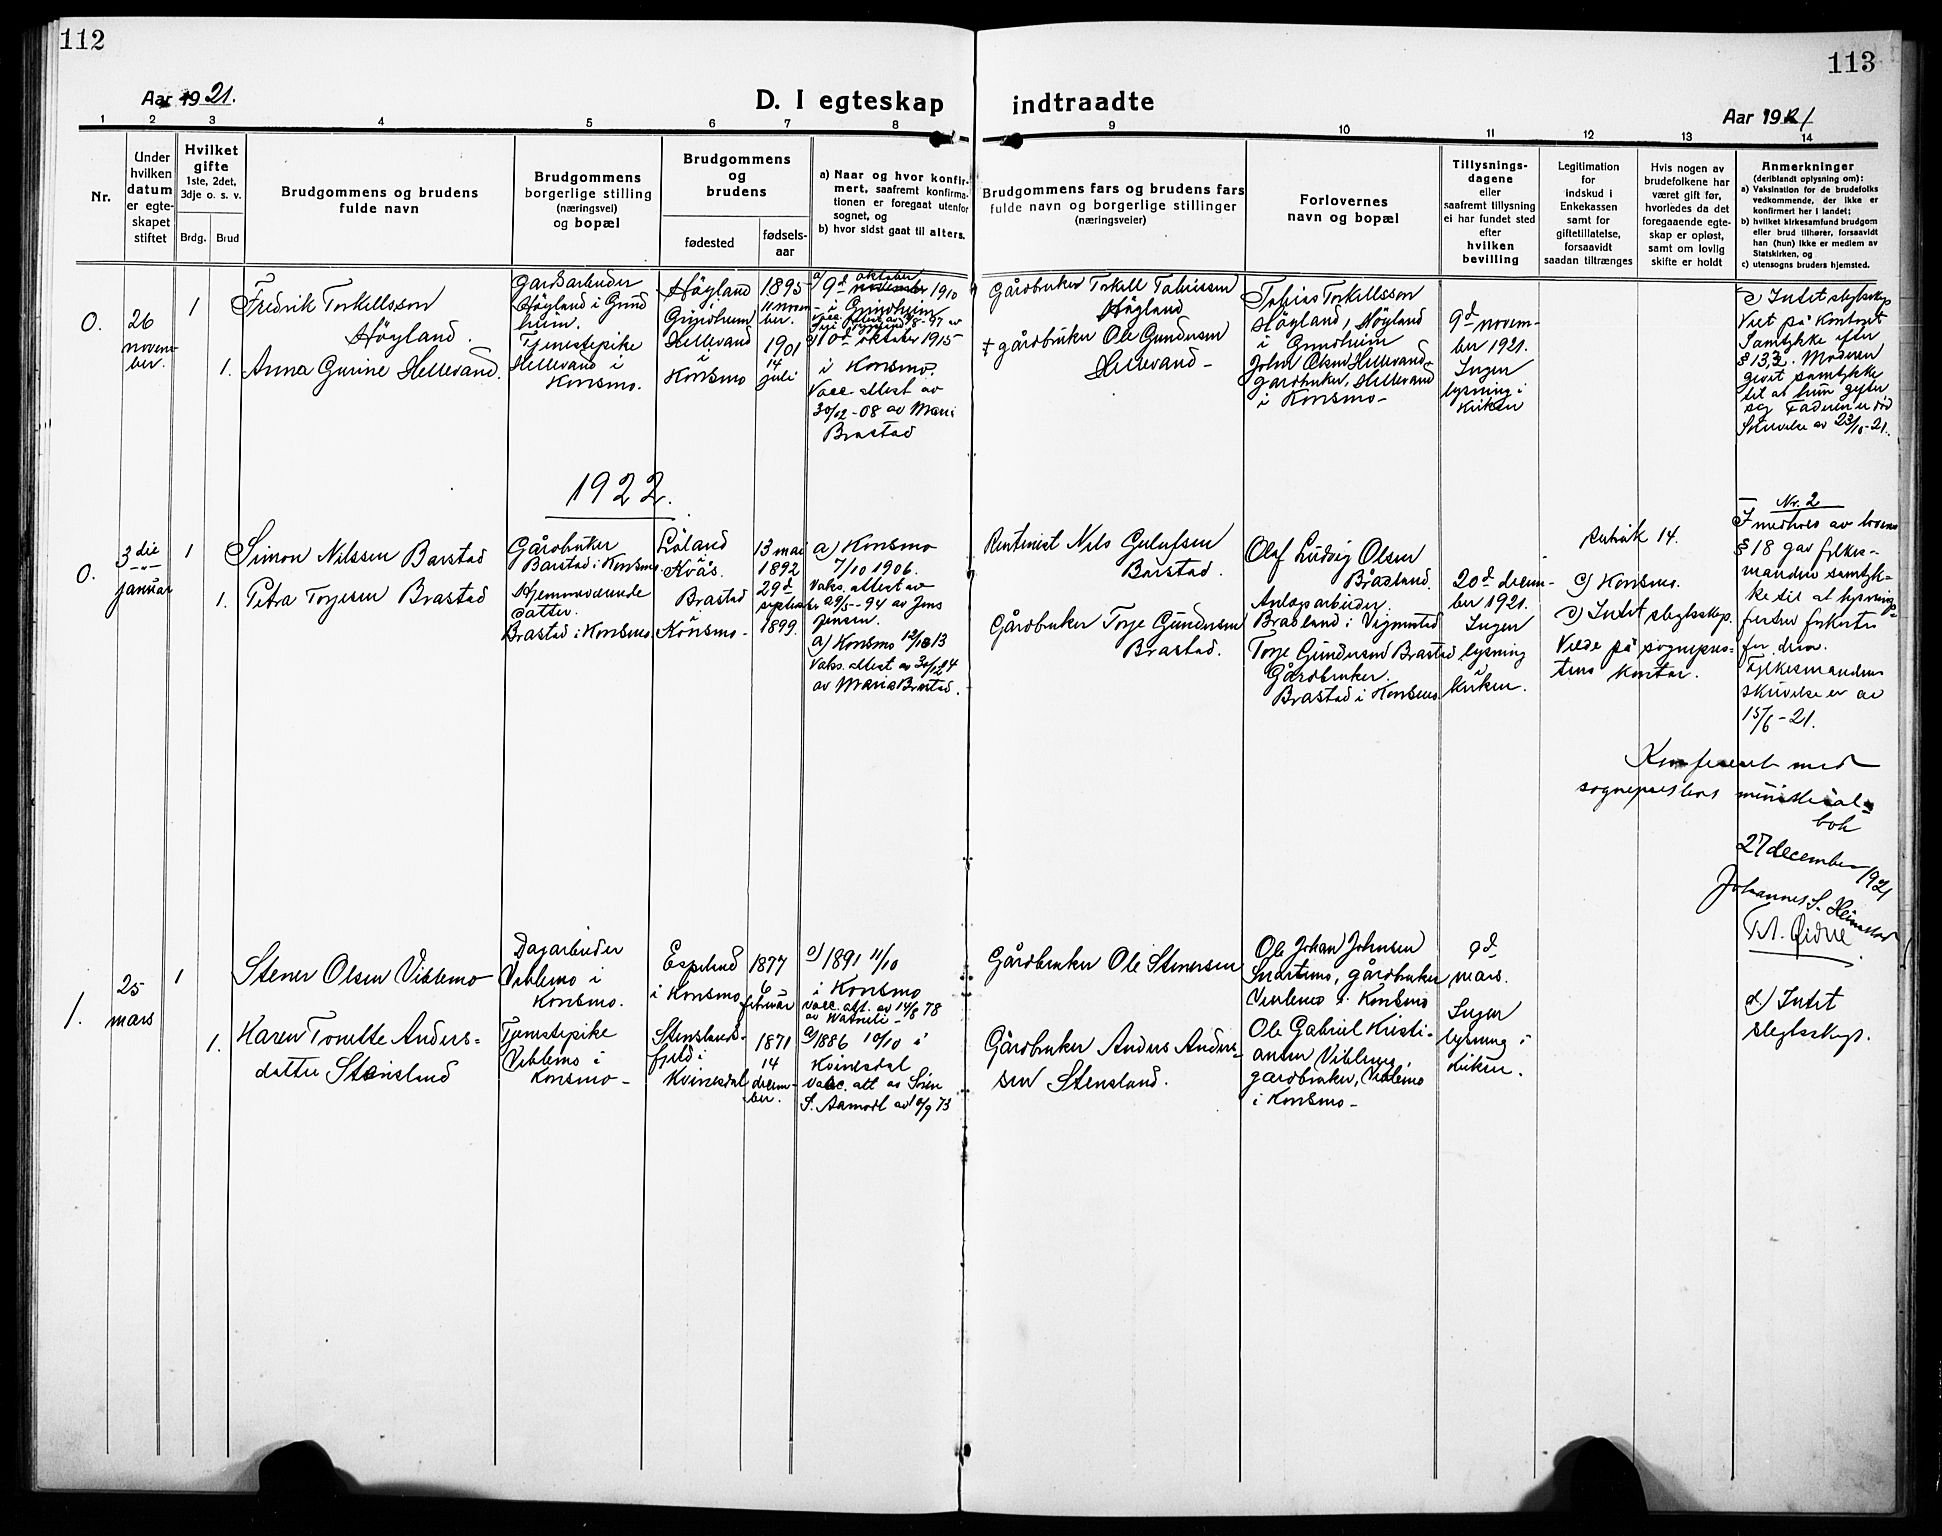 112
113
Aar 1921.
D. I egteskap
indtraadte
Aar 1921
1
2
3
4
5
6
7
8
9
10
11
12
13
14
Nr.
Under hvilken datum er egteskapet stiftet
Hvilket gifte
1ste, 2det, 3dje o. s. v.
Brdg.
Brud
Brudgommens og brudens fulde navn
Brudgommens borgerlige stilling (næringsvei) og bopæl
Brudgommens og brudens
fødested
fødsels-aar
a) Naar og hvor konfirmert, saafremt konfirmationen er foregaat utenfor sognet, og
b) hvor sidst gaat til alters.
Brudgommens fars og brudens fars fulde navn og borgerlige stillinger
(næringsveier)
Forlovernes navn og bopæl
Tillysningsdagene
eller
saafremt tillysning ei har fundet sted efter
hvilken bevilling
Legitimation for indskud i Enkekassen samt for giftetillatelse, forsaavidt saadan tiltrænges
Hvis nogen av brudefolkene har været gift før, hvorledes da det foregaaende egteskap er opløst, samt om lovlig skifte er holdt
Anmerkninger
(deriblandt oplysning om):
a) Vaksination for de brudefolks vedkommende, der ikke er konfirmert her i landet;
b) hvilket kirkesamfund brudgom eller brud tilhører, forsaavidt han (hun) ikke er medlem av Statskirken, og
c) utensogns bruders hjemsted.
0.
26
novem-
ber.
1
Fredrik Torkellsson
Høyland.
1.
Anna Gurine Hellevand.
Gardsarbeider
Høyland i Grind
heim.
Tjenestepike
Hellevand i
Konsmo.
Høyland
Grindheim
Hellevand
i
Konsmo
1895
11. novem
ber.
1901
14
juli
a) 9d oktober 1910
i Grindheim
10d oktober 1915
i Konsmo.
Vacc. attest av
30/12-08 av Mari
Brastad
Gårdbruker Torkell Tobiassen
Høyland
† gårdbruker Ole Gundersen
Hellevand -
Tobias Torkellsson
Høyland, Høyland
i Grindheim
Johan Olsen Hellevand
gardbruker, Hellevand
i Konsmo -
9d novem-
ber 1921.
Ingen
lysning i
kirken
c) Intet slegtskap
Viet på kontoret
Samtykke efter
Moderen
givet samtykke
til at hun gifter
seg Faderen er død
Skrivelse av 23/10-21.
1922.
0.
3die
januar
1
Simon Nilssen Barstad
1.
Petra Torjesen Brastad
Gårdbruker
Barstad i Konsmo.
Hjemmeværende
datter.
Brastad i Konsmo
Løland
Kvås.
Brastad
Konsmo -
13 mai
1892
29d
september
1899.
a) Konsmo
7/10 1906.
Vaks. attest av
29/5-94 av Jens
Jensen.
a) Konsmo 12/10 13
Vaks. attest av 30/12 14
av Maria Brastad.
Rentenist Nils Gulufsen
Barstad.
Gårdbruker Torje Gundersen
Brastad.
Olaf Ludvig Olsen
Braaland.
Anlegsarbeider.
Braaland i Vigmostad
Torje Gundersen Brastad
Gårdbruker.
Brastad i Konsmo
20d decem-
ber 1921.
Ingen
lysning
i
kirken.
Rubrik 14.
c) Konsmo.
d) Intet slegtskap.
Viede på sognepres-
tens kontor.
Nr. 2
I medhold av lovens
§ 18 gav fylkes-
manden samtyk-
ke til at lysnings-
fristen forkortes
for dem.
Fylkesmandens
skrivelse er av
15/6-21.
Konfereret med
sogneprestens ministerial-
bok
27 december 1921
Johannes S. Heimstad
T. A. Øidne
1.
25
mars
1
Stener Olsen Viblemo
1.
Karen Tonette Anders-
datter Stensland
Dagarbeider
Viblemo i
Konsmo.
Tjenestepike
Viblemo i
Konsmo -
Espelend
i Konsmo
Stenslands-
fjeld i
Kvinesdal
1877
6
februar
1871
14
decem-
ber.
a) 1891 11/10
i Konsmo
vacc. att. av 14/8 78
a) 1886 10/10 i
Kvinesdal
vacc. att av Sven
S. Aamodt av 10/9 73
Gårdbruker Ole Stenersen
Gårdbruker Anders Anders-
sen Stensland.
Ole Johan Johnsen
Snartemo, gårdbruker
Viblemo i Konsmo
Ole Gabriel Kristi-
ansen Viblemo
gardbruker, Viblemo
i Konsmo -
9d
mars.
Ingen
lysning i
kirken.
d) Intet
slegtskap.